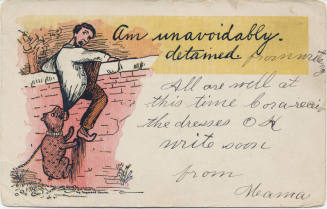 Am unavoidably
detained from writing
All are well at
this time Cora recei
the dresses OK
write soon
from
Mama